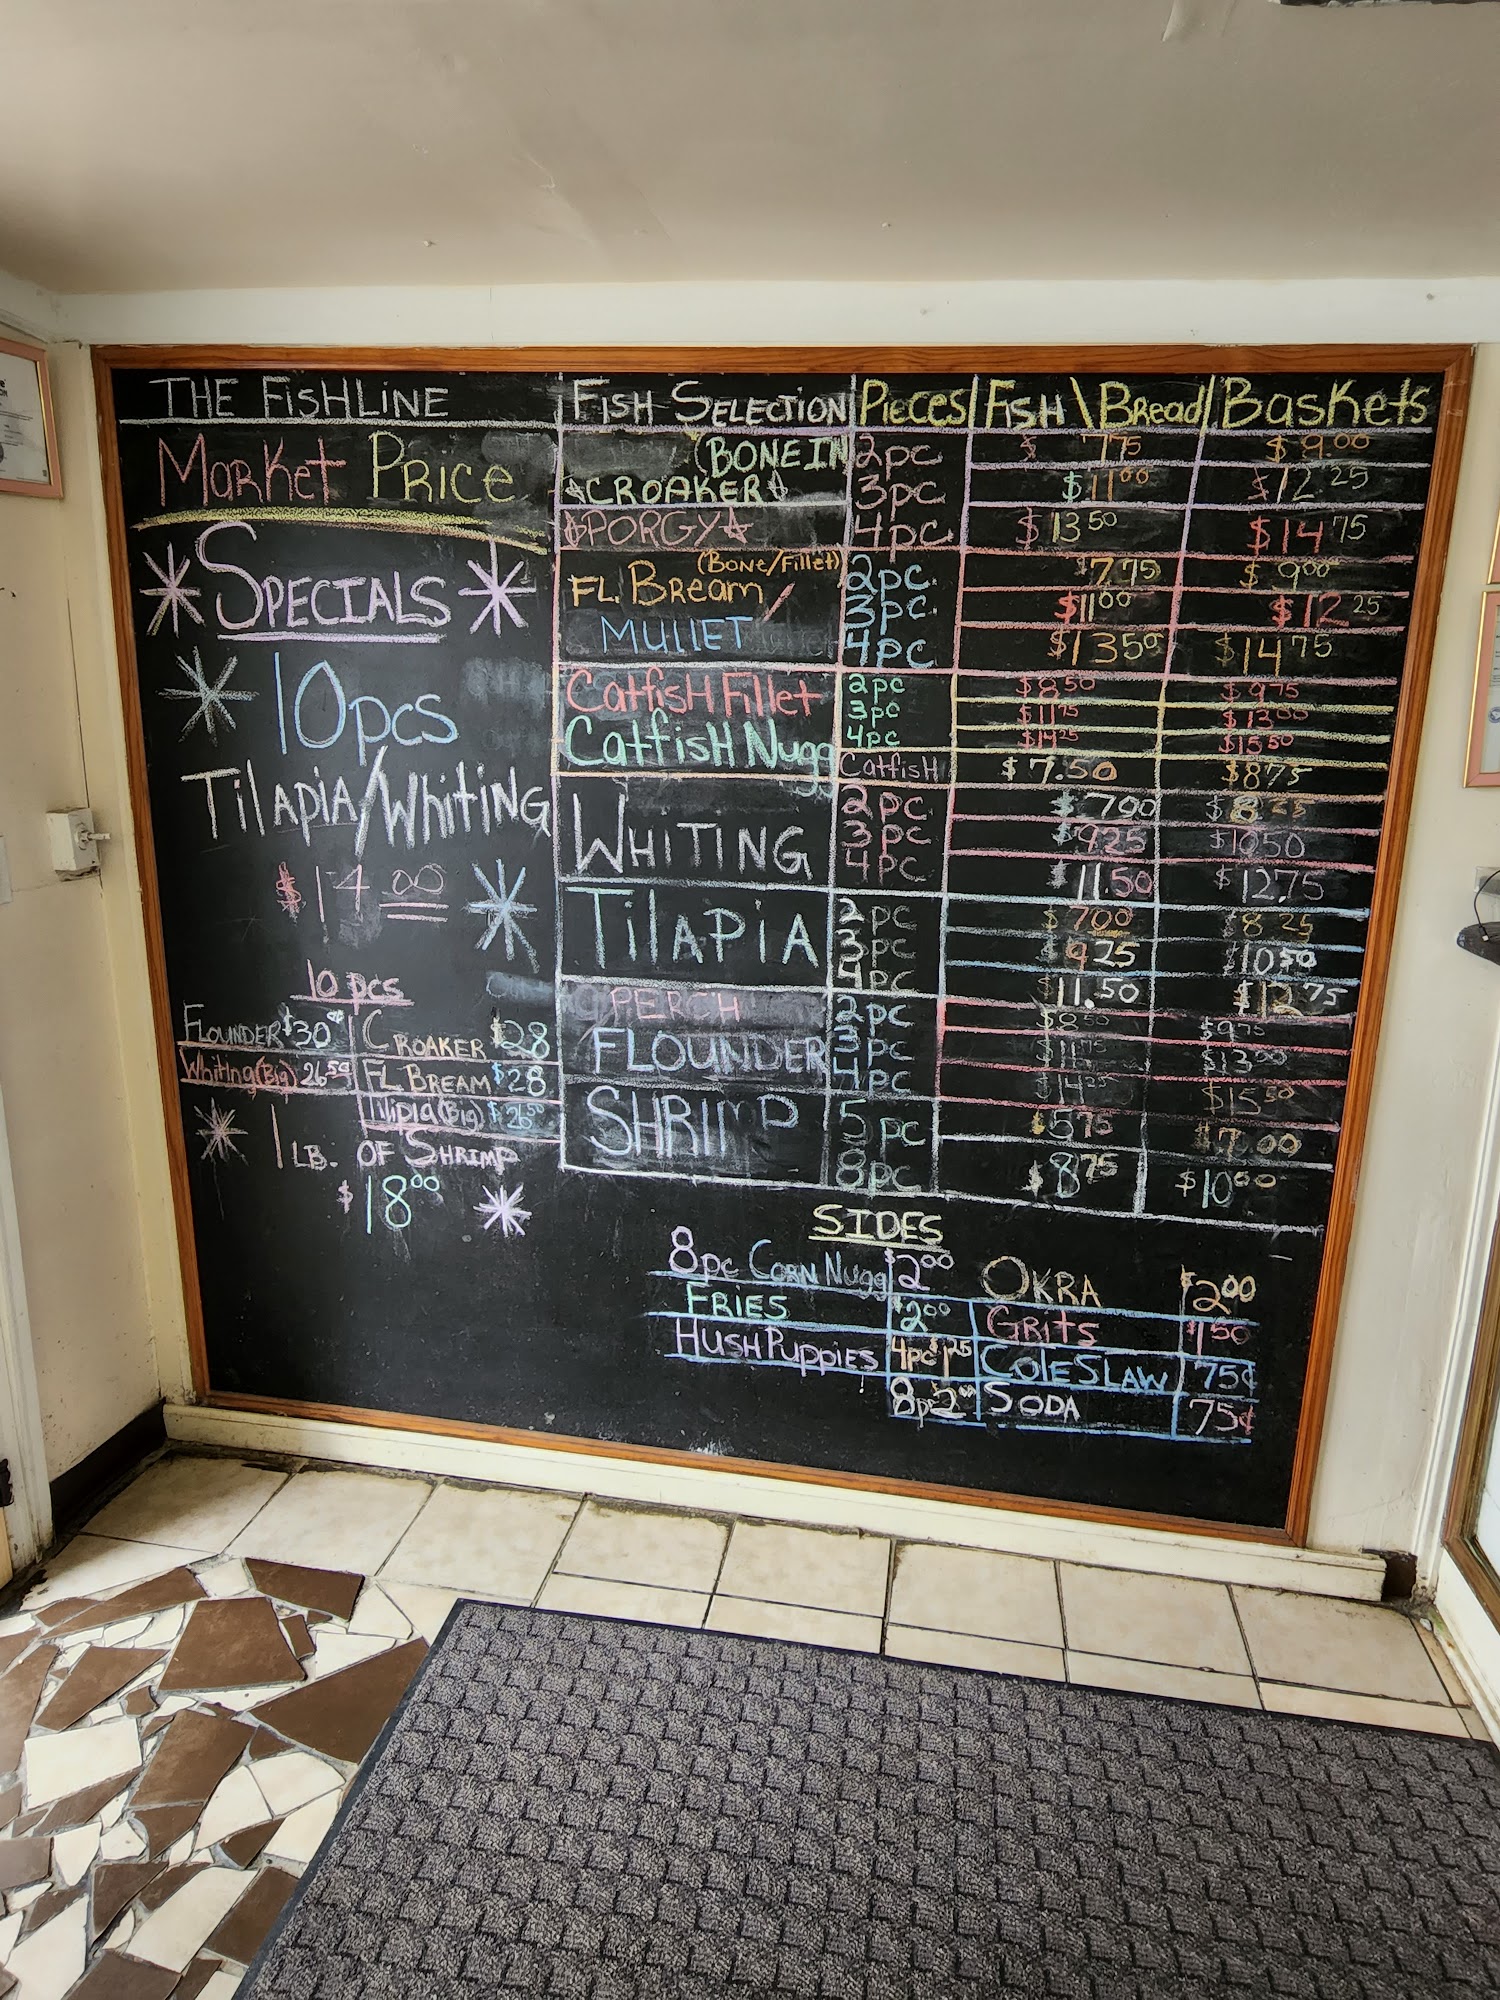 THE FISHLINE
Market Price
SPECIALS
10pcs
Tilapia/Whiting
$14.00
10 pcs
FLOUNDER $30
CROAKER $28
Whiting(Big) 26.50
FL BREAM $28
Tilipia(Big) $26.50
1 LB. OF SHRIMP
$18.00
FISH SELECTION Pieces FISH\Bread Baskets
(BONE IN 2pc $7.75 $9.00
CROAKER 3pc $11.00 $12.25
PORGY 4pc $13.50 $14.75
(Bone/Fillet) 2pc $7.75 $9.00
FL. Bream/ 3pc $11.00 $12.25
MULLET 4pc $13.50 $14.75
Catfish Fillet 2pc $8.50 $9.75
3pc $11.75 $13.00
Catfish Nugg 4pc $14.25 $15.50
Catfish $7.50 $8.75
WHITING 2pc $7.00 $8.25
3pc $9.25 $10.50
4pc $11.50 $12.75
TILAPIA 2pc $7.00 $8.25
3pc $9.25 $10.50
4pc $11.50 $12.75
PERCH 2pc $8.50 $9.75
FLOUNDER 3pc $11.75 $13.00
4pc $14.25 $15.50
SHRIMP 5pc $5.75 $7.00
8pc $8.75 $10.00
SIDES
8pc CORN Nugg $2.00 OKRA $2.00
FRIES $2.00 GRITS $1.50
HUSHPUPPIES 4pc $1.25 COLESLAW 75¢
8pc $2.00 SODA 75¢